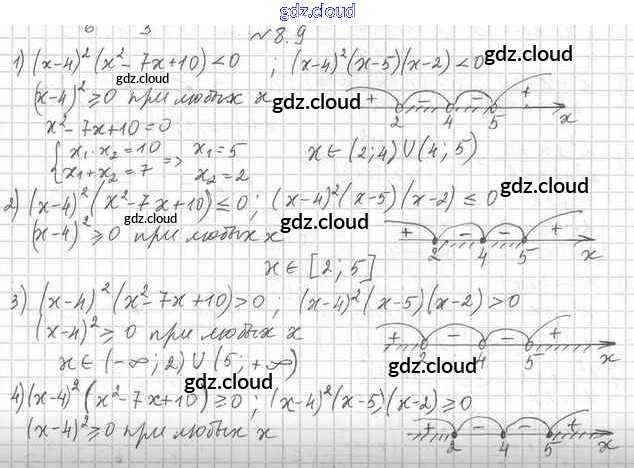 gdz.cloud
6 3
№ 8.9
1) (x-4)² (x² - 7x + 10) < 0 ; (x-4)² (x-5)(x-2) < 0
gdz.cloud
gdz.cloud
(x-4)² ≥ 0 при любых x
gdz.cloud
+ - - +
2 4 5 x
x² - 7x + 10 = 0
{ x₁ · x₂ = 10
x₁ + x₂ = 7 => x₁ = 5
x₂ = 2
x ∈ (2; 4) ∪ (4; 5)
gdz.cloud
2) (x-4)² (x² - 7x + 10) ≤ 0 ; (x-4)² (x-5)(x-2) ≤ 0
gdz.cloud
gdz.cloud
(x-4)² ≥ 0 при любых x
gdz.cloud
+ - - +
2 4 5 x
x ∈ [2; 5]
3) (x-4)² (x² - 7x + 10) > 0 ; (x-4)² (x-5)(x-2) > 0
(x-4)² ≥ 0 при любых x
+ - - +
2 4 5 x
x ∈ (-∞; 2) ∪ (5; +∞)
gdz.cloud
gdz.cloud
4) (x-4)² (x² - 7x + 10) ≥ 0 ; (x-4)² (x-5)(x-2) ≥ 0
gdz.cloud
gdz.cloud
(x-4)² ≥ 0 при любых x
+ - - +
2 4 5 x